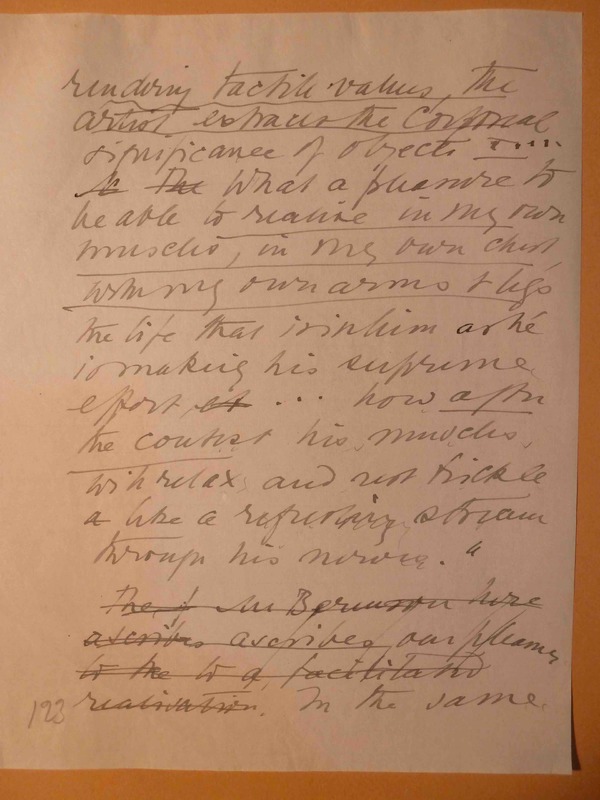 rendering tactile values, the
artist extracts the corporeal
significance of objects ....
The What a pleasure to
be able to realise in my own
muscles, in my own chest,
with my own arms & legs
the life that is in him as he
is making his supreme
effort ... how after
the contest his muscles
will relax and rest trickle
a like a refreshing stream
through his nerves."
The Mr Berenson here
ascribes ascribes our pleasure
to the to a facilitated
realisation. In the same
123